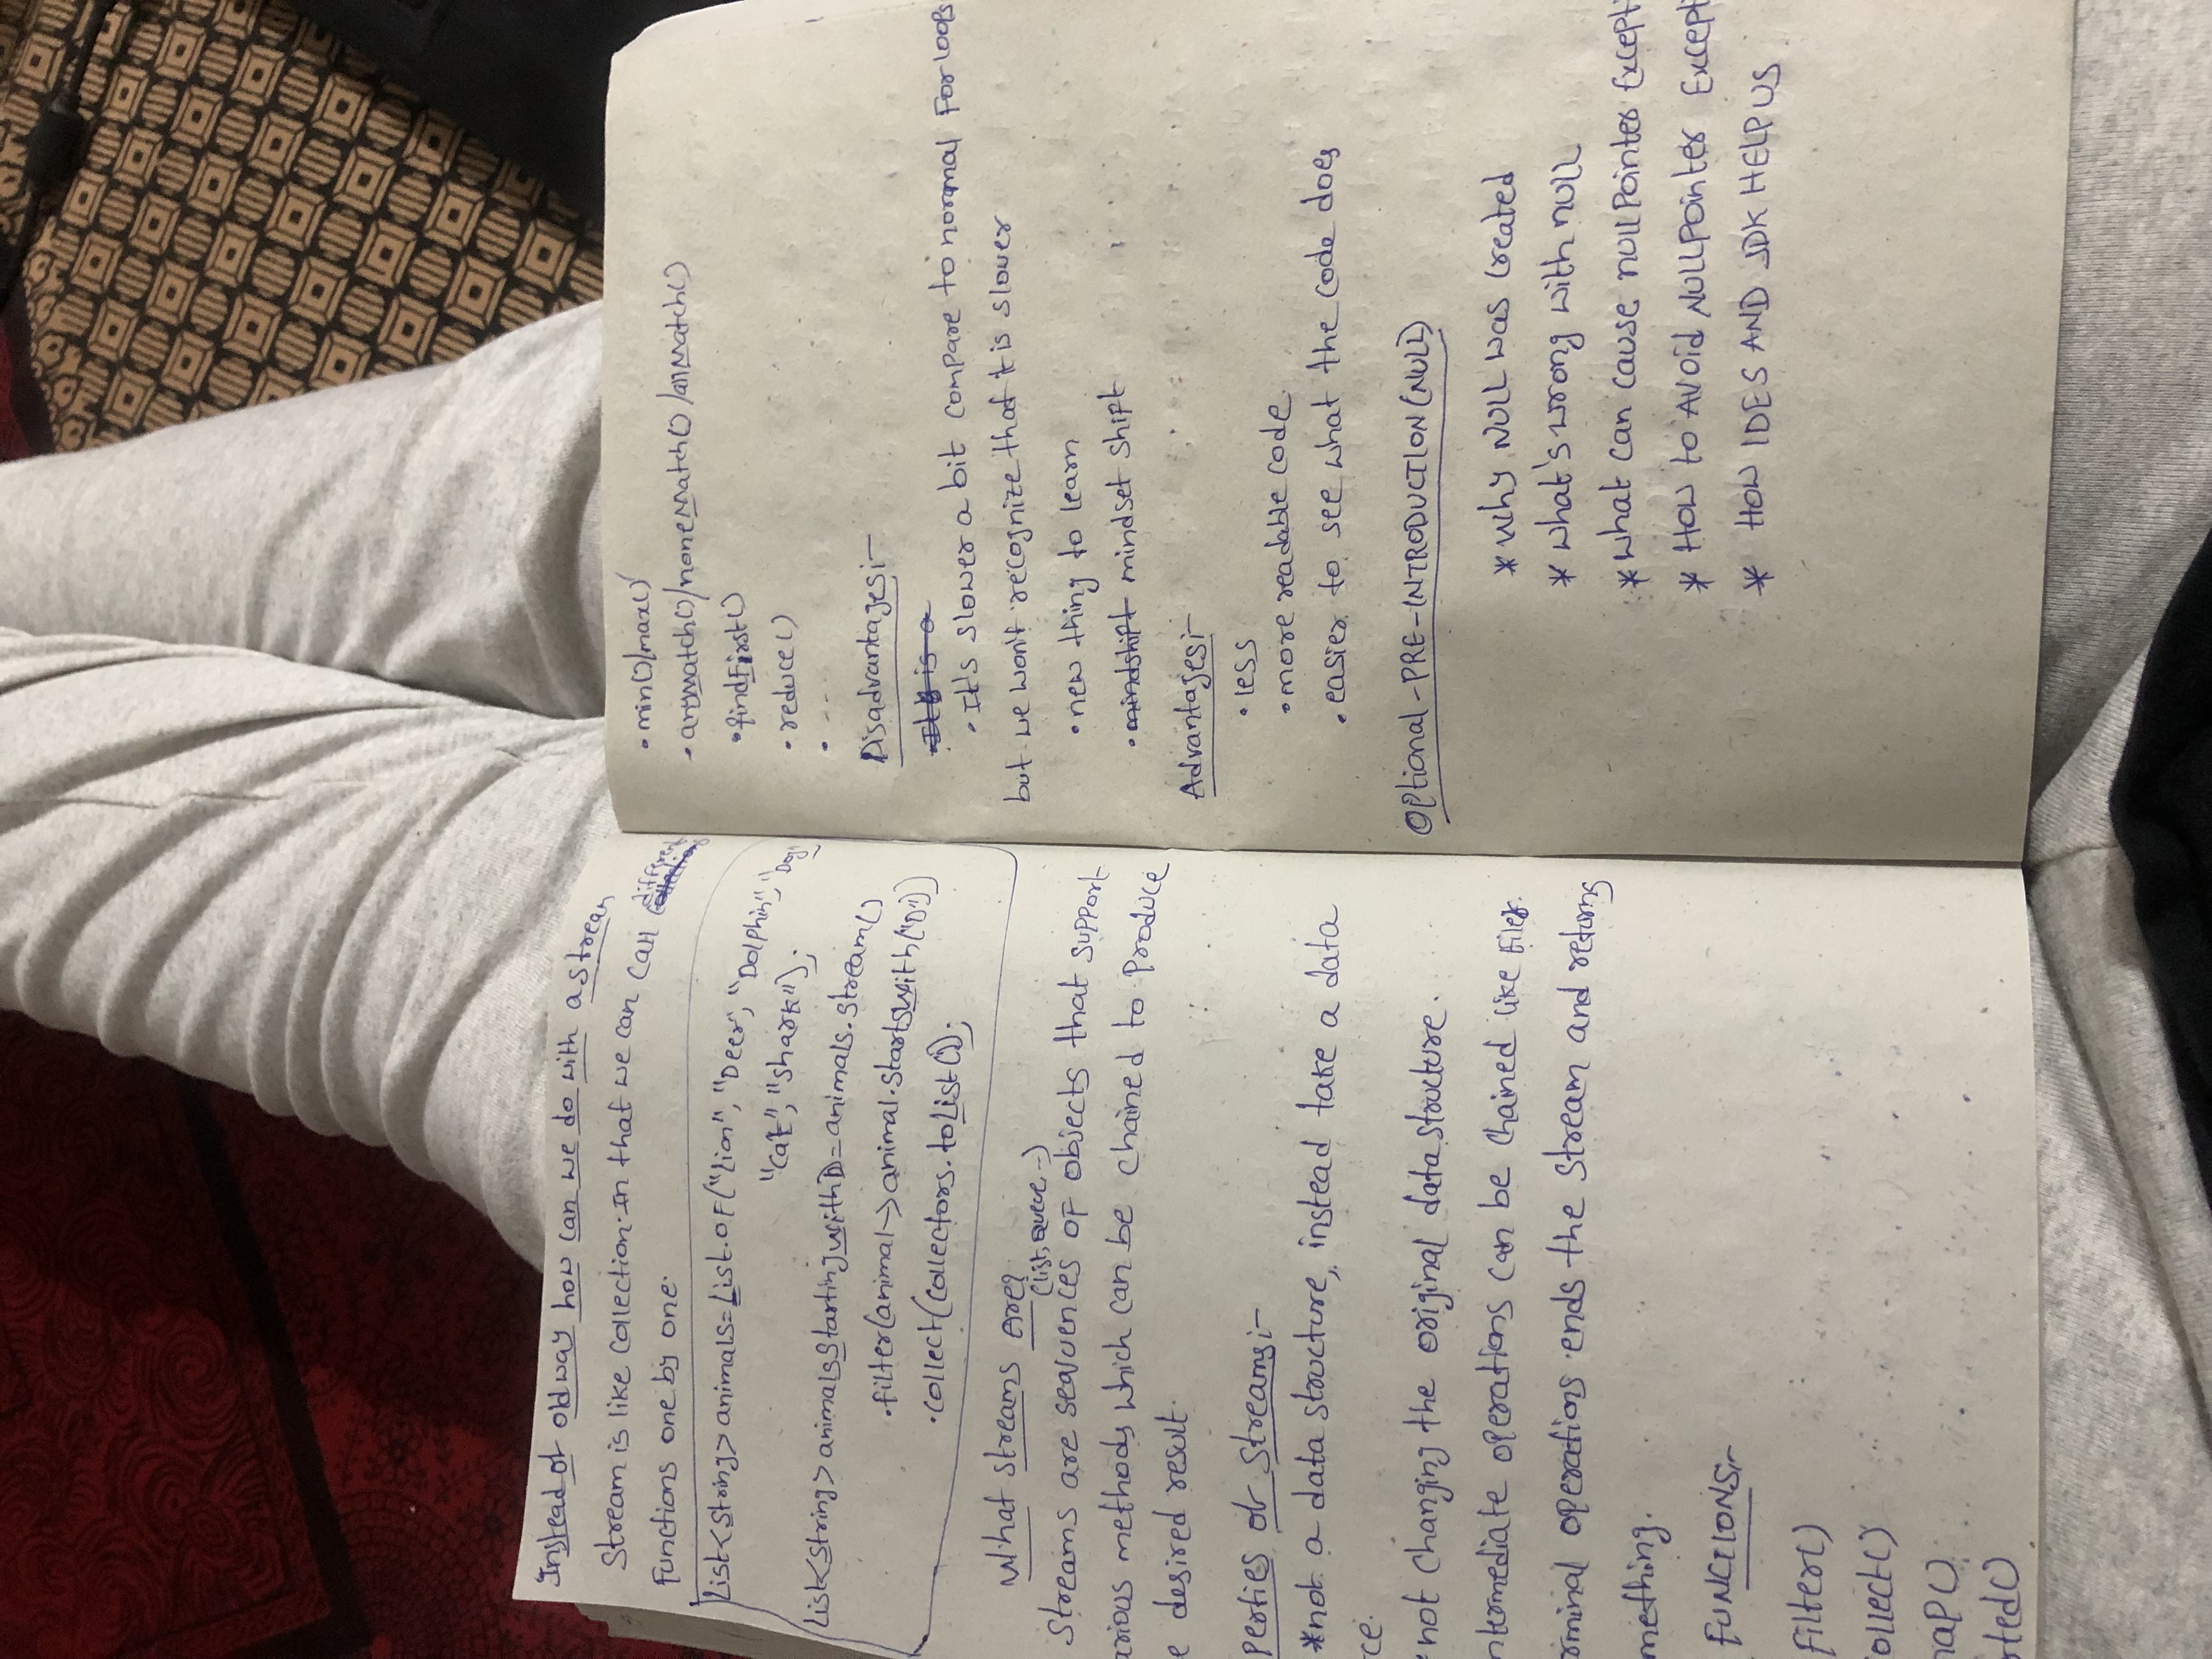 Instead of old way how can we do with a stream
Stream is like Collection. In that we can call different
functions one by one.
List<String> animals = List.of("lion", "Deer", "Dolphin", "Dog",
"Cat", "shark");
List<String> animalsStartingWithD = animals.stream()
.filter(animal -> animal.startsWith("D"))
.collect(collectors.toList());
What streams are?
(list, queue, --)
Streams are sequences of objects that support
arious methods which can be chained to produce
e desired result.
perties of Streams:-
*not a data structure, instead take a data
rce.
*not changing the original data structure.
ntermediate operations can be chained like filer.
rminal operations ends the stream and returns
mething.
FUNCTIONS:-
filter()
ollect()
map()
rted()
• min()/max()
• anyMatch()/noneMatch()/allMatch()
• findFirst()
• reduce()
• ---
Disadvantages:-
It is a
• It's slower a bit compare to normal for loops
but we won't recognize that it is slower
• new thing to learn
• mindshift mindset shift
Advantages:-
• less
• more readable code.
• easier to see what the code does
Optional-PRE-INTRODUCTION(NULL)
* Why NULL was created
* what's wrong with null
* what can cause nullPointer Excepti
* HOW to AVOID NULLPointer Excepti
* HOW IDES AND JDK HELP US